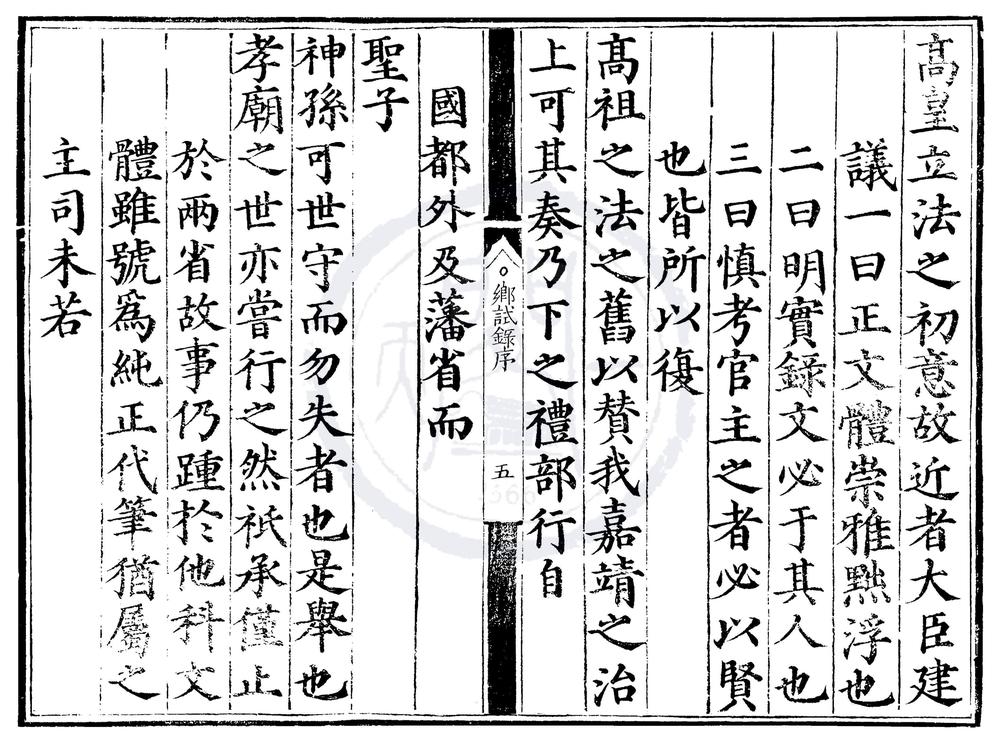 髙皇立法之初意故近者大臣建
議一曰正文體崇雅黜浮也
二曰明實録文必于其人也
三曰慎考官主之者必以賢
也皆所以復
髙祖之法之舊以賛我嘉靖之治
上可其奏乃下之禮部行自
鄉試錄序
五
國都外及藩省而
聖子
神孫可世守而勿失者也是舉也
孝廟之世亦嘗行之然祇承僅止
於兩省故事仍踵於他科文
體雖號爲純正代筆猶屬之
主司未若